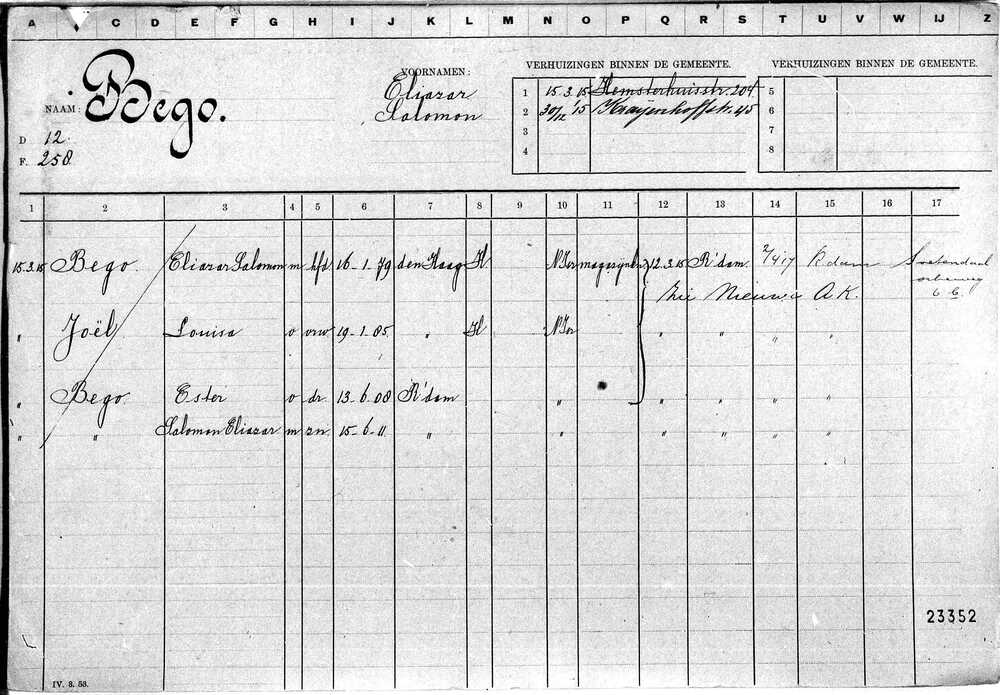 A B C D E F G H I J K L M N O P Q R S T U V W IJ Z
NAAM: Bego.
VOORNAMEN:
Eliazar
Salomon
D 12
F. 258
VERHUIZINGEN BINNEN DE GEMEENTE.
1 15.3.15 Hemsterhuisstr. 204
2 30/12 '15 Kraijenhoffstr. 45
3
4
VERHUIZINGEN BINNEN DE GEMEENTE.
5
6
7
8
1 2 3 4 5 6 7 8 9 10 11 12 13 14 15 16 17
15.3.15 Bego Eliazar Salomon m hfd 16-1-79 den Haag H N.Isr magazijnbn 12.3.15 R'dam 2/4 17 Rdam
Zie Nieuwe A.K. 6 b
" Joël Louisa v vrw 19-1-85 " H N.Isr " " " "
" Bego Ester v dr 13-6-08 R'dam " " " " "
" " Salomon Eliazar m zn 15-6-11 " " " " " "
23352
IV. 8. 53.